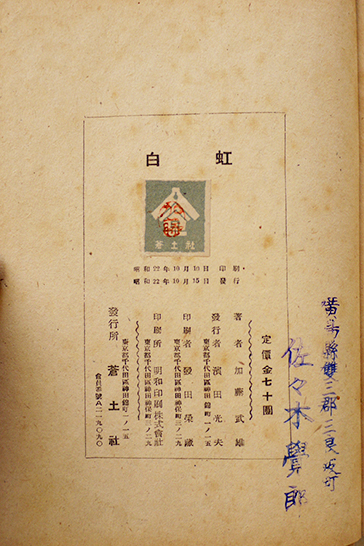 白虹
蒼土社
昭和22年10月10日印刷
昭和22年10月15日發行
定價金七十圓
著者 加藤武雄
發行者 濱田光夫
東京都千代田區神田錦町一ノ一五
印刷者 發田榮藏
東京都千代田區神田神保町三ノ二九
印刷所 明和印刷株式會社
東京都千代田區神田神保町三ノ二九
發行所 蒼土社
東京都千代田區神田錦町一ノ一五
會員番號A二一九〇九〇
縣雙三郡三良坂町
佐々木